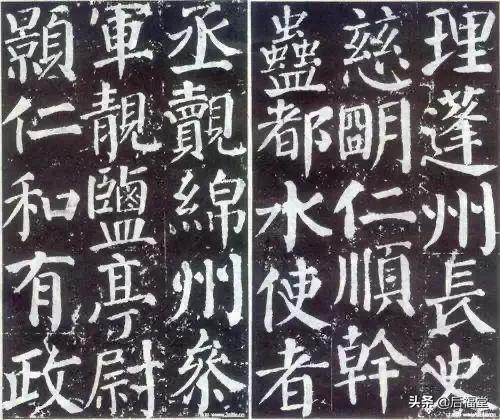 丞覿綿州參
軍靚鹽亭尉
顥仁和有政
理蓬州長史
慈明仁順幹
蠱都水使者
头条 @后福堂